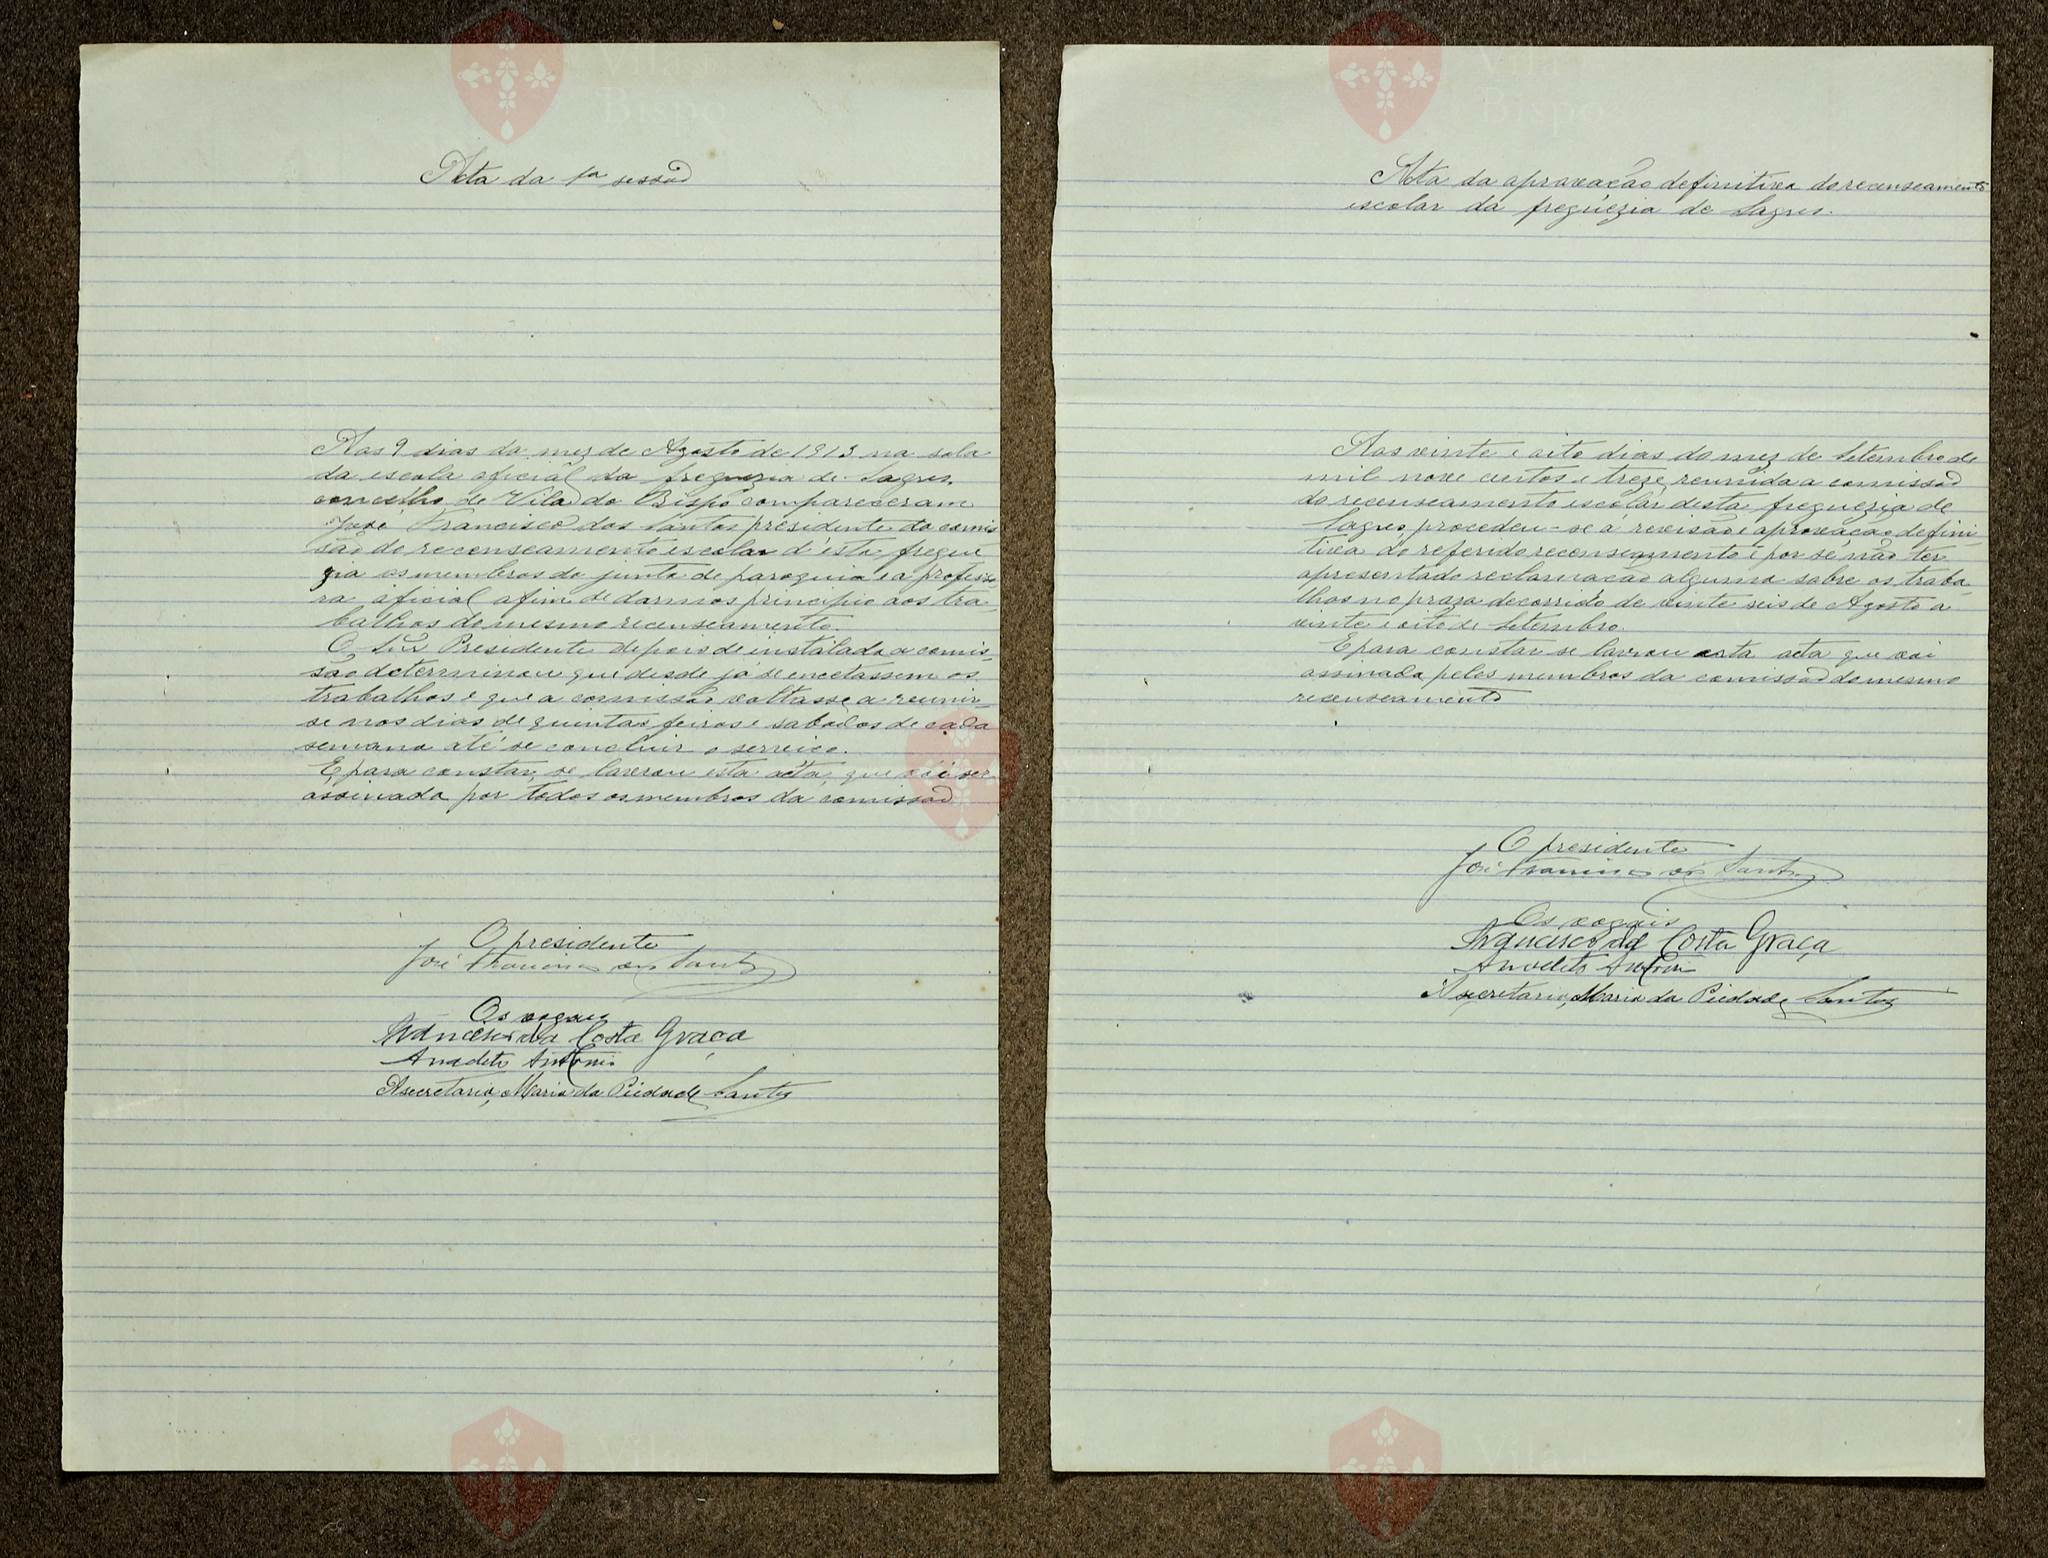 Acta da 1ª sessão
Aos 9 dias do mez de Agosto de 1913 na sala
da escola oficial da freguezia de Sagres,
concelho de Vila do Bispo compareceram
José Francisco dos Santos presidente da comis
são do recenseamento escolar d'esta fregue
zia os membros da junta de paroquia e a profess
ra oficial afim de darmos principio aos tra
balhos do mesmo recenseamento.
O Snr Presidente depois de instalada a comis-
são determinou que desde já se encetassem os
trabalhos e que a comissão voltasse a reunir-
se nos dias de quintas feiras e sabados de cada
semana até se concluir o serviço.
E para constar, se lavrou esta acta, que vai ser
assinada por todos os membros da comissão
O presidente
José Francisco dos Santos
Os vogaes
Francisco da Costa Graça
Anacleto Antonio
A secretaria, Maria da Piedade Santos
Acta da aprovação definitiva do recenseamento
escolar da freguezia de Sagres.
Aos vinte e oito dias do mez de Setembro de
mil nove centos e treze, reunida a comissão
do recenseamento escolar desta freguezia de
Sagres, procedeu-se a revisão e aprovação defini-
tiva do referido recenseamento e por se não ter
apresentado reclamação alguma sobre os traba-
lhos no prazo decorrido de vinte seis de Agosto a
vinte e oito de Setembro.
E para constar se lavrou esta acta que vai
assinada pelos membros da comissão do mesmo
recenseamento
O presidente
José Francisco dos Santos
Os vogais
Francisco da Costa Graça
Anacleto Antonio
A secretaria, Maria da Piedade Santos
Vila do
Bispo